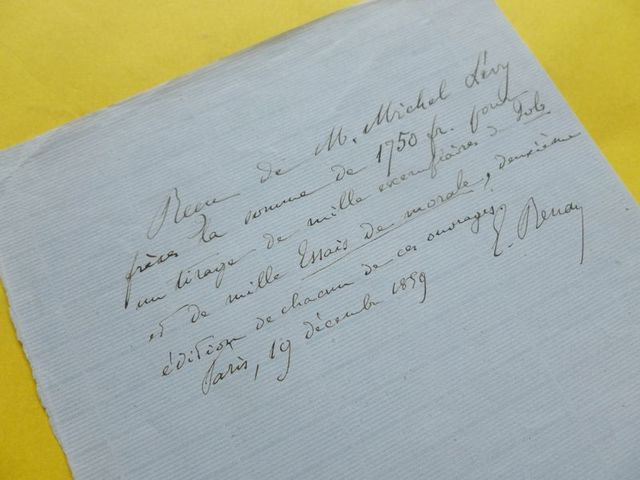 Recu de M. Michel Lévy
frères la somme de 1750 fr. pour
un tirage de mille exemplaires de Job
et de mille Essais de morale, deuxième
édition de chacun de ces ouvrages.
E. Renan
Paris, 19 décembre 1859